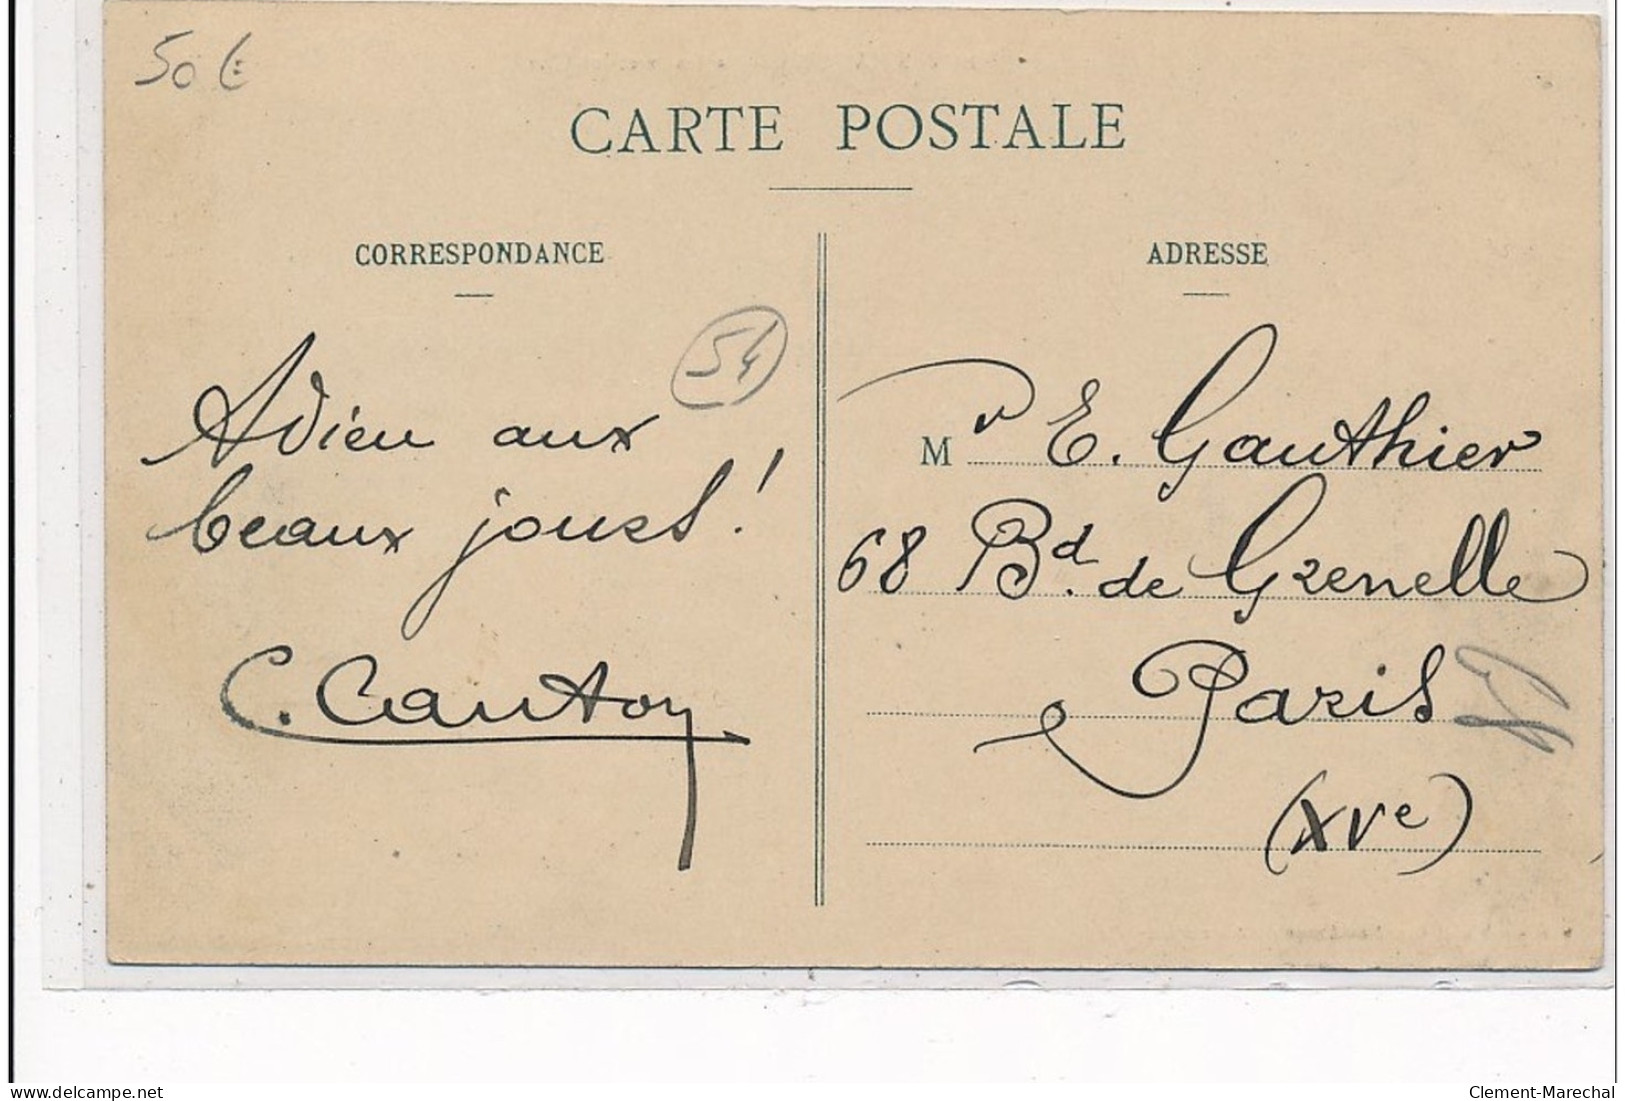 50 €
CARTE POSTALE
CORRESPONDANCE
ADRESSE
54
Adieu aux
beaux jours!
C. Cantoy
Mr E. Gauthier
68 Bd. de Grenelle
Paris
(XVe)
delcampe.net
Clement-Marechal